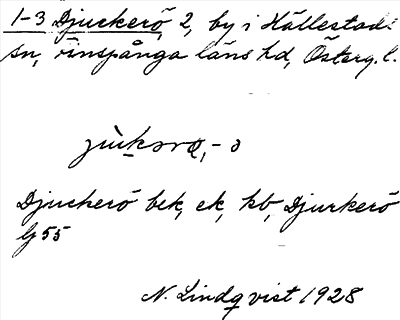 1-3 Djuckerö, 2, by i Hällestads
sn, Finspånga läns hd, Österg. l.
Djuckerö bek, ek, kb, Djurkerö
G 55
N. Lindqvist 1928